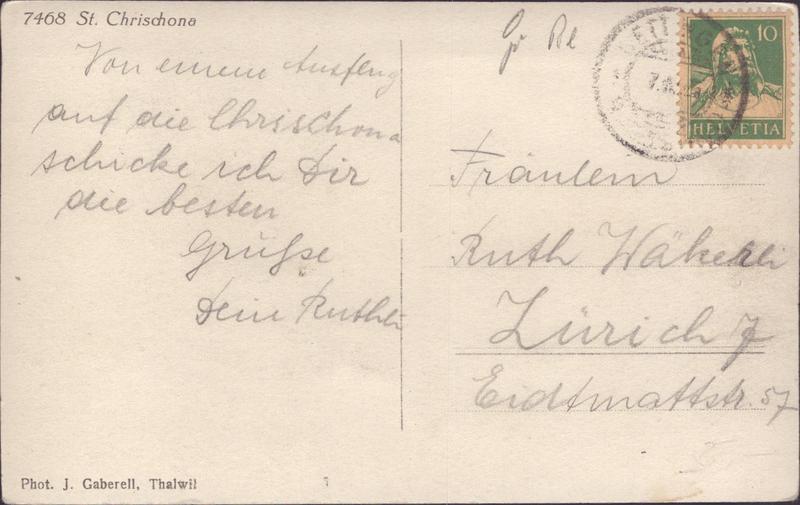 7468 St. Chrischona
Von einem Ausflug
auf die Chrischona
schicke ich Dir
die besten
Grüße
Dein Ruthli
Phot. J. Gaberell, Thalwil
10
HELVETIA
Fräulein
Ruth Wäkerli
Zürich 7
Eidtmattstr. 57